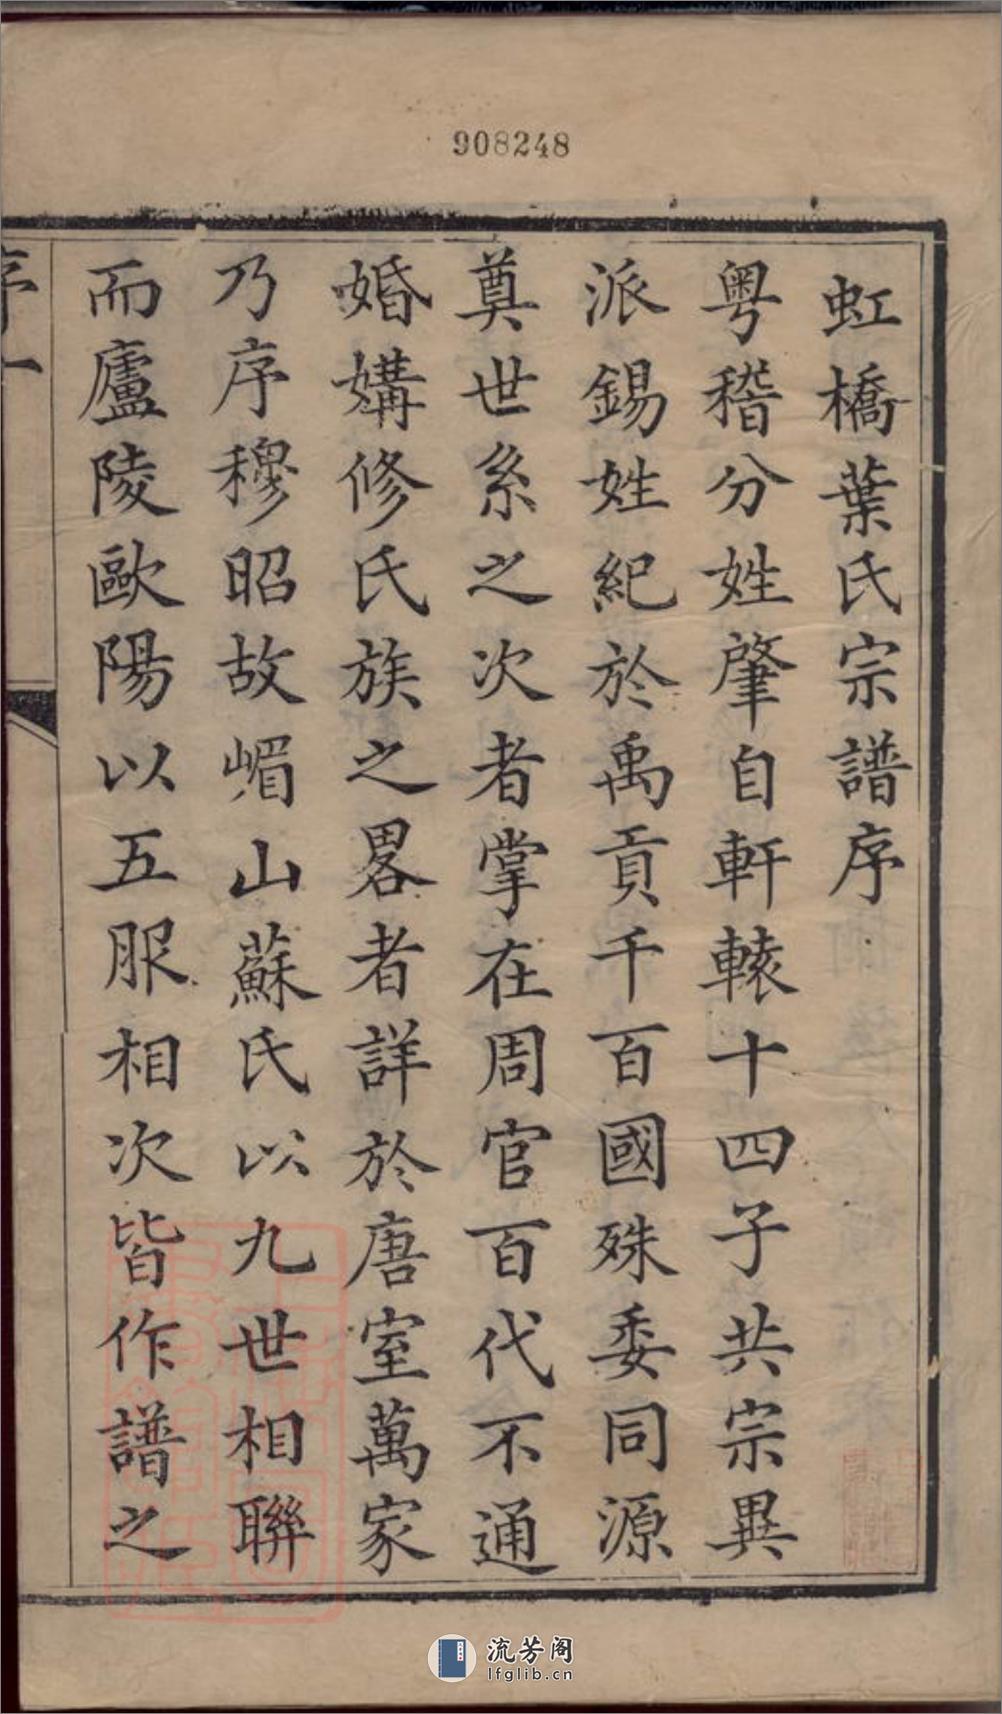 908248
虹橋葉氏宗譜序
粤稽分姓肇自軒轅十四子共宗異
派錫姓紀於禹貢千百國殊委同源
奠世系之次者掌在周官百代不通
婚媾修氏族之畧者詳於唐室萬家
乃序穆昭故嵋山蘇氏以九世相聯
而廬陵歐陽以五服相次皆作譜之
序一
流芳阁
lfglib.cn